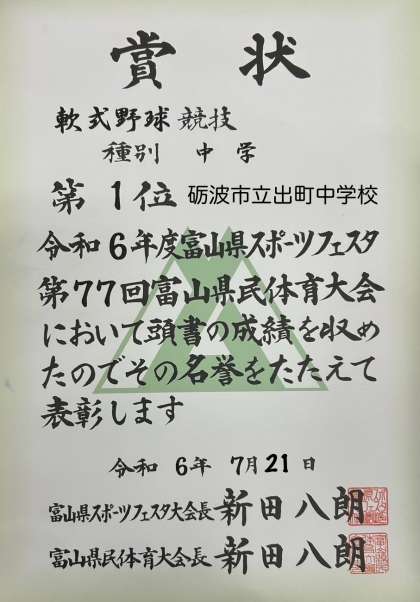 賞状
軟式野球競技
種別 中学
第1位 砺波市立出町中学校
令和6年度富山県スポーツフェスタ
第77回富山県民体育大会
において頭書の成績を収め
たのでその名誉をたたえて
表彰します
令和 6年 7月21日
富山県スポーツフェスタ大会長 新田八朗
富山県民体育大会長 新田八朗